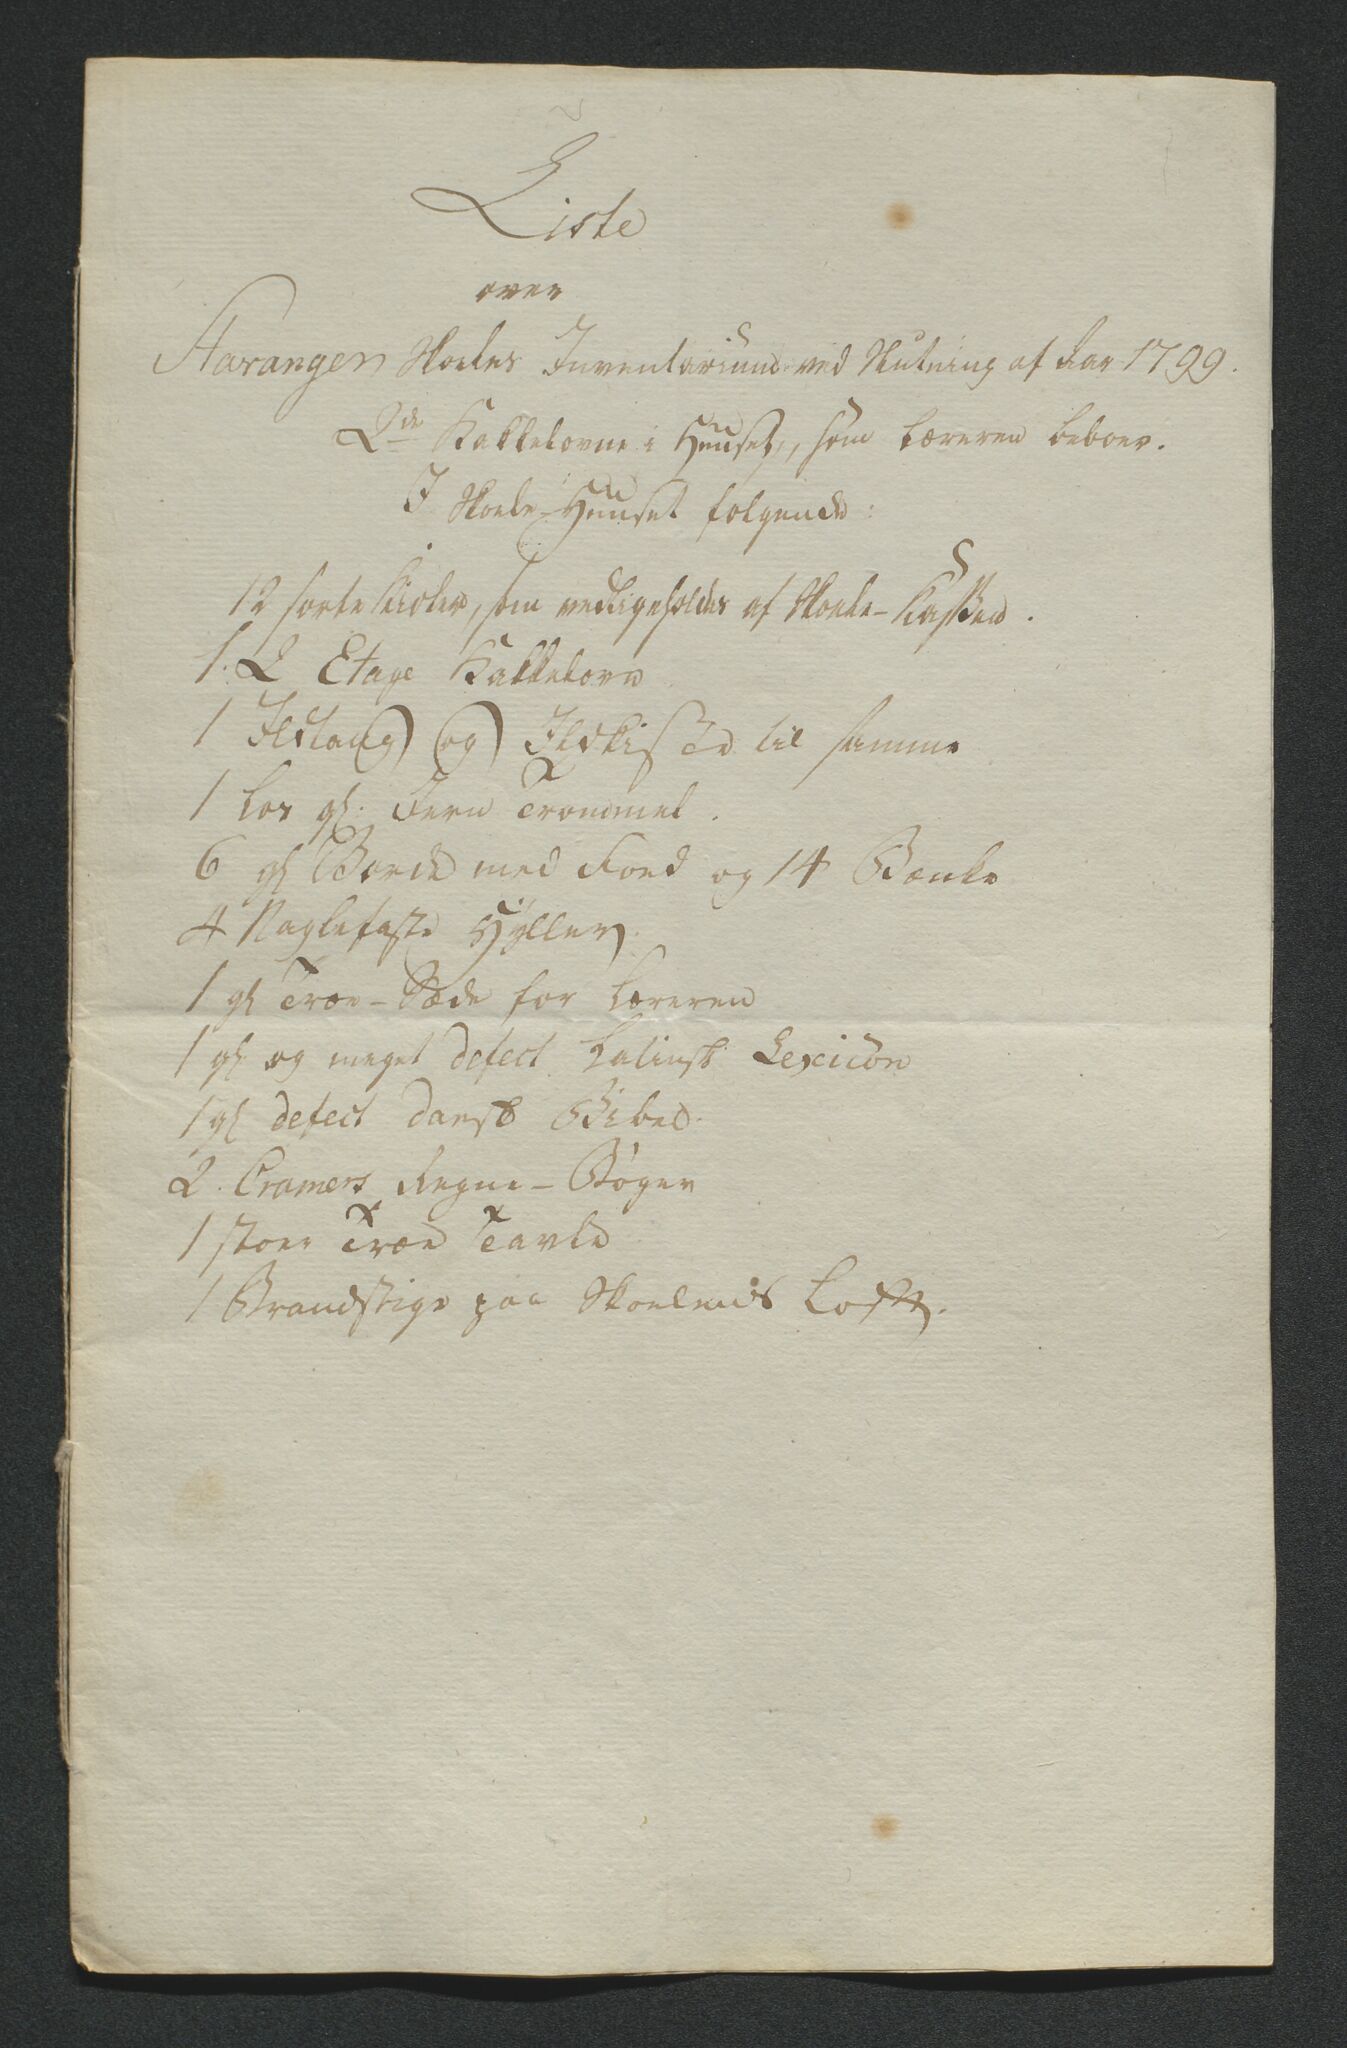 Liste
over
Stavangers Skoeles Inventarium ved Slutning af Aar 1799.
2de Kakkelovne i Huuset, som Læreren beboer.
I Skole-Huuset følgende:
12 sorte Kioler, som vedligeholdes af Skoele-Cassen.
1. 2 Etage Kakkelovn
1 Ildtang og Ildkissel til samme
1 Lor gl. Jern Trommel.
6 gl Borde med Foed og 14 Bænke
4 Naglefaste Hyller.
1 gl Træe-Sæde for Læreren
1 gl og meget defect Latinsk Lexicon
1 gl defect dansk Bibel.
2. Cramers Regne-Bøger
1 stoer Træe Tavle
1 Brandstige paa Skoelens Loft.